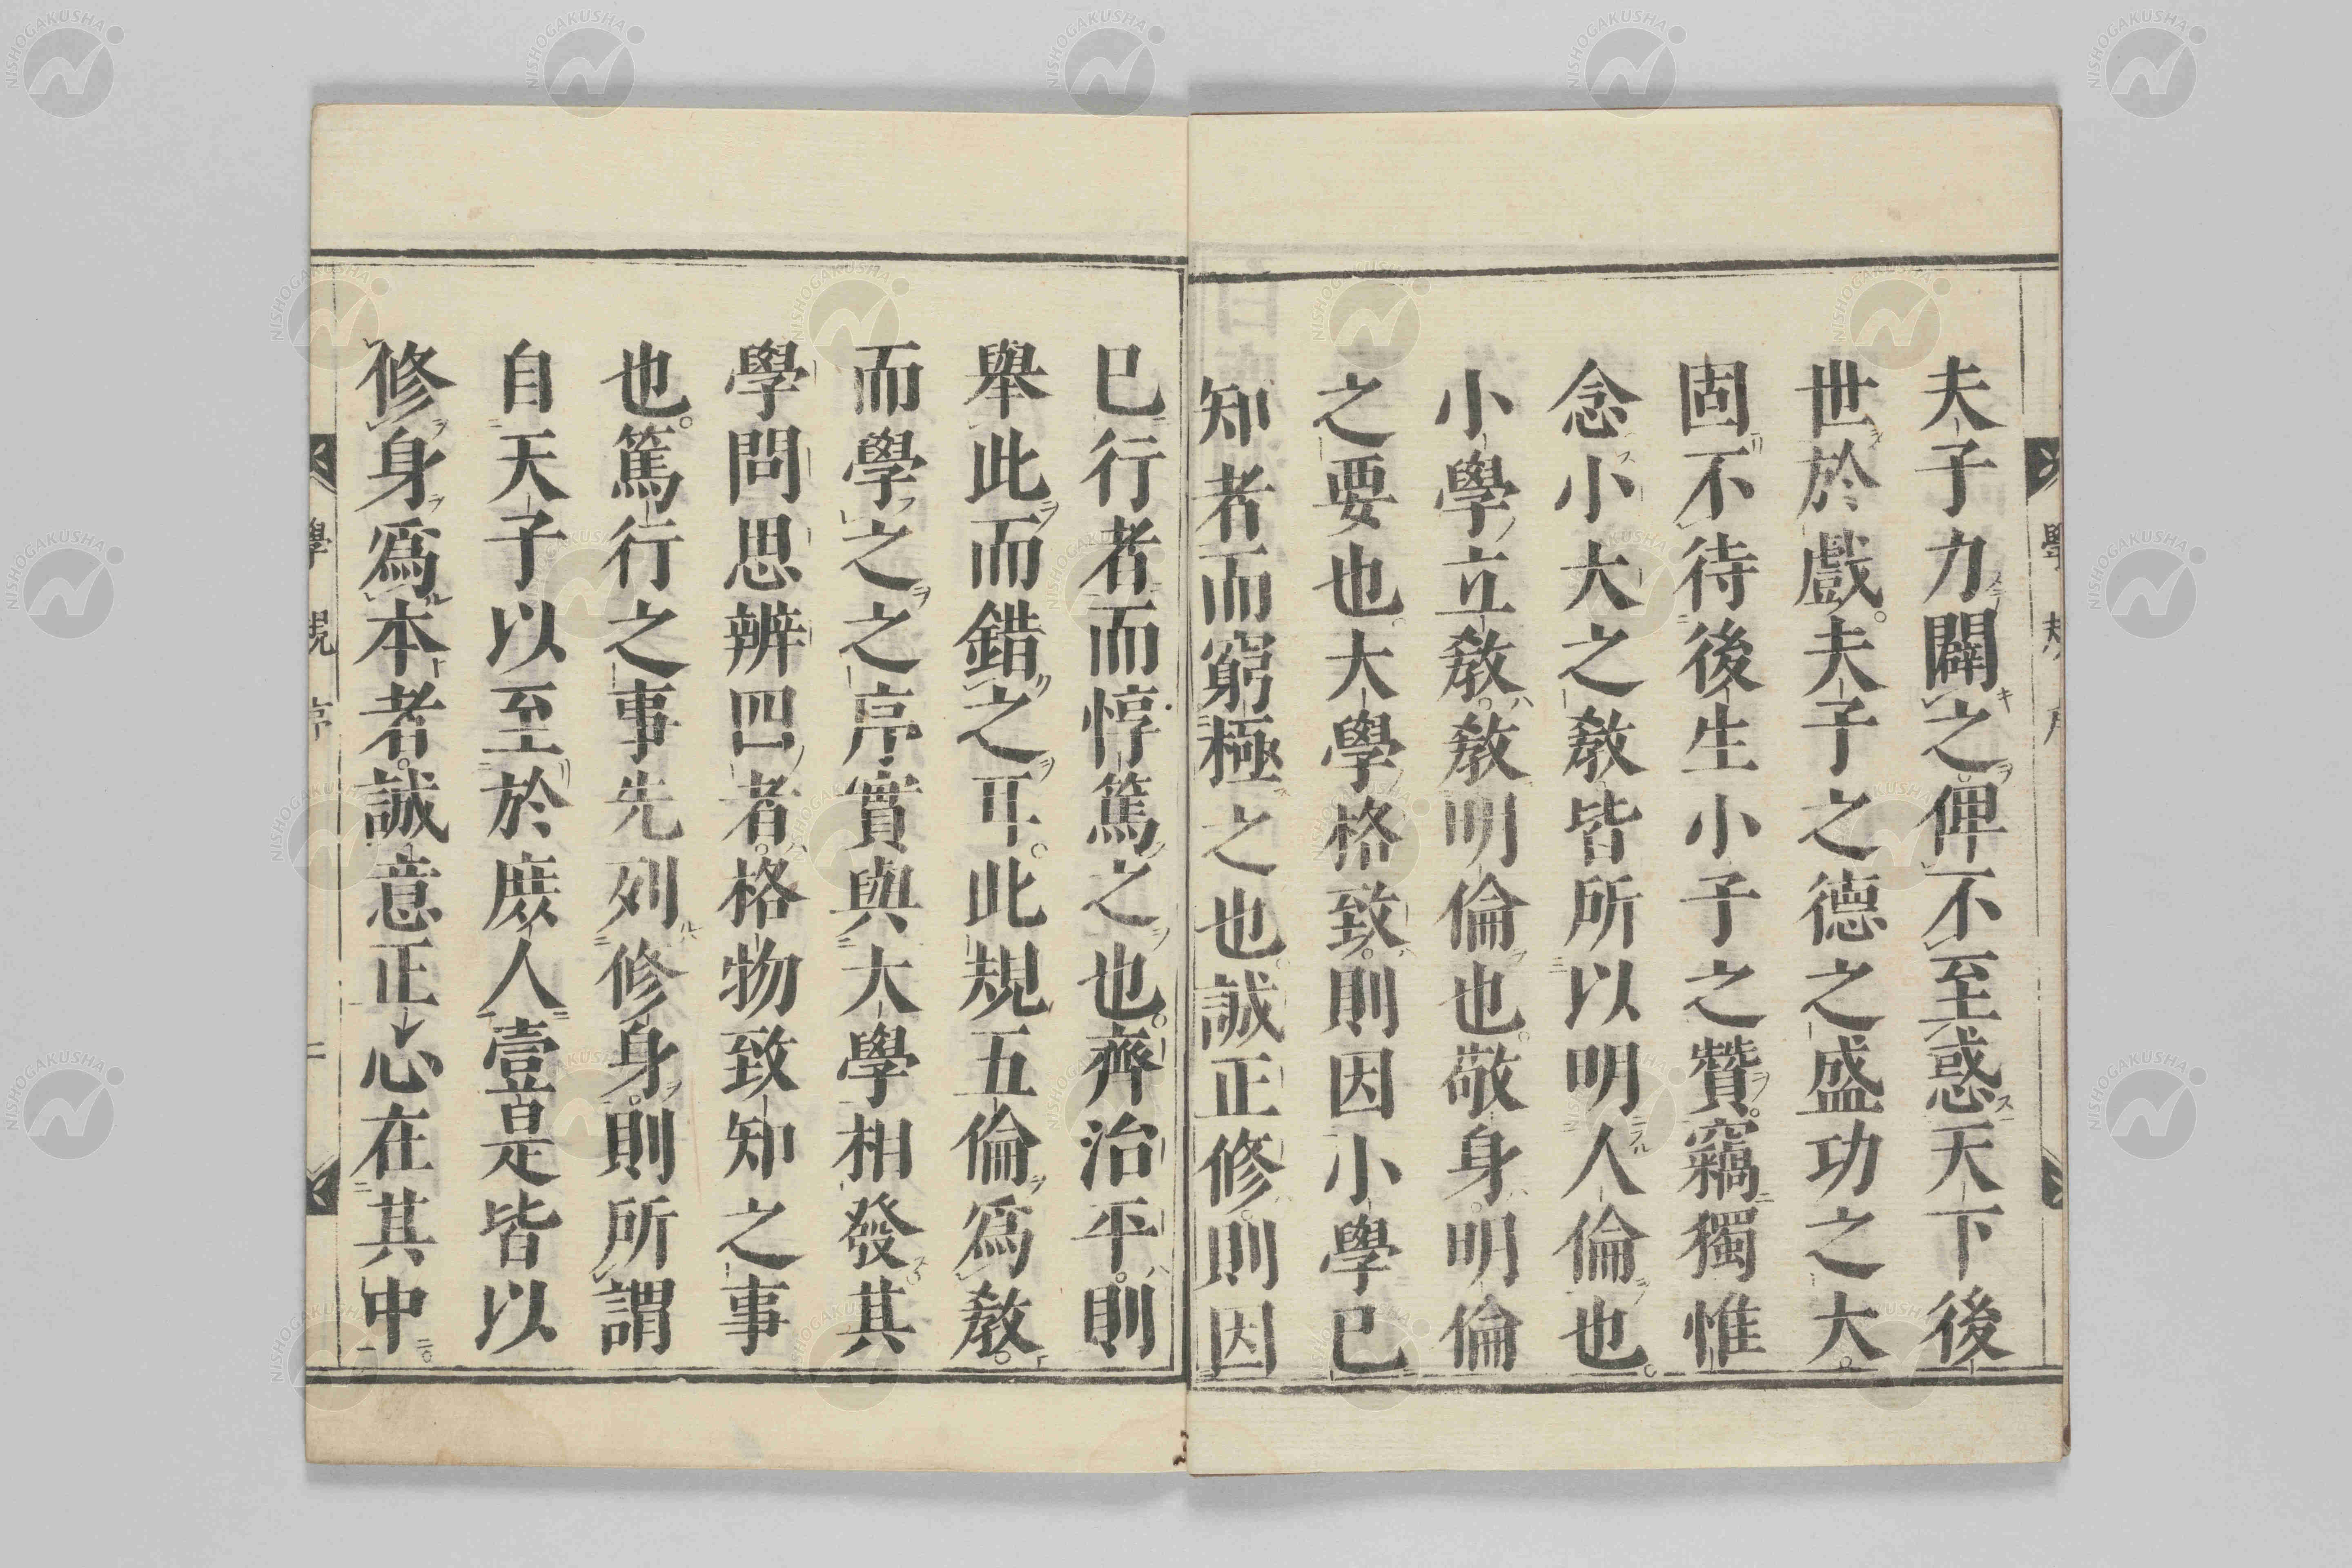 夫子力闢之。俾不至惑天下後
世於戲。夫子之德之盛功之大。
固不待後生小子之贊。竊獨惟
念小大之敎皆所以明人倫也。
小學立敎。敎明倫也。敬身。明倫
之要也。大學格致。則因小學已
知者而窮極之也。誠正修。則因
已行者而惇篤之也。齊治平。則
舉此而錯之耳。此規五倫爲敎。
而學之之序實與大學相發其
學問思辨四者。格物致知之事
也。篤行之事先列修身。則所謂
自天子以至於庶人壹是皆以
修身爲本者。誠意正心在其中
學規序
二
NISHOGAKUSHA